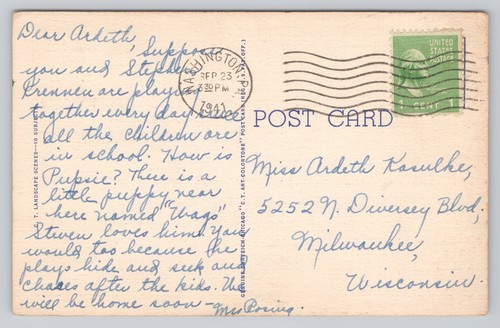 Dear Ardeth, Suppose
you and Stephen
Brennen are playing
together every day since
all the children are
in school. How is
Pupsie? There is a
little puppy near
here named "Wags"
Steven loves him. You
would too because he
plays hide and seek and
chases after the kids. We
will be home soon -
Mrs Posing.
WASHINGTON, D.C.
SEP 23
3 30 PM
1941
UNITED
STATES
POSTAGE
1 CENT 1
POST CARD
T. LANDSCAPE SCENES—10 SUBJECTS
GENUINE CURTEICH-CHICAGO "C.T. ART-COLORTONE" POST CARD (REG. U.S. PAT. OFF.)
Miss Ardeth Kasulke,
5252 N. Diversey Blvd,
Milwaukee,
Wisconsin.